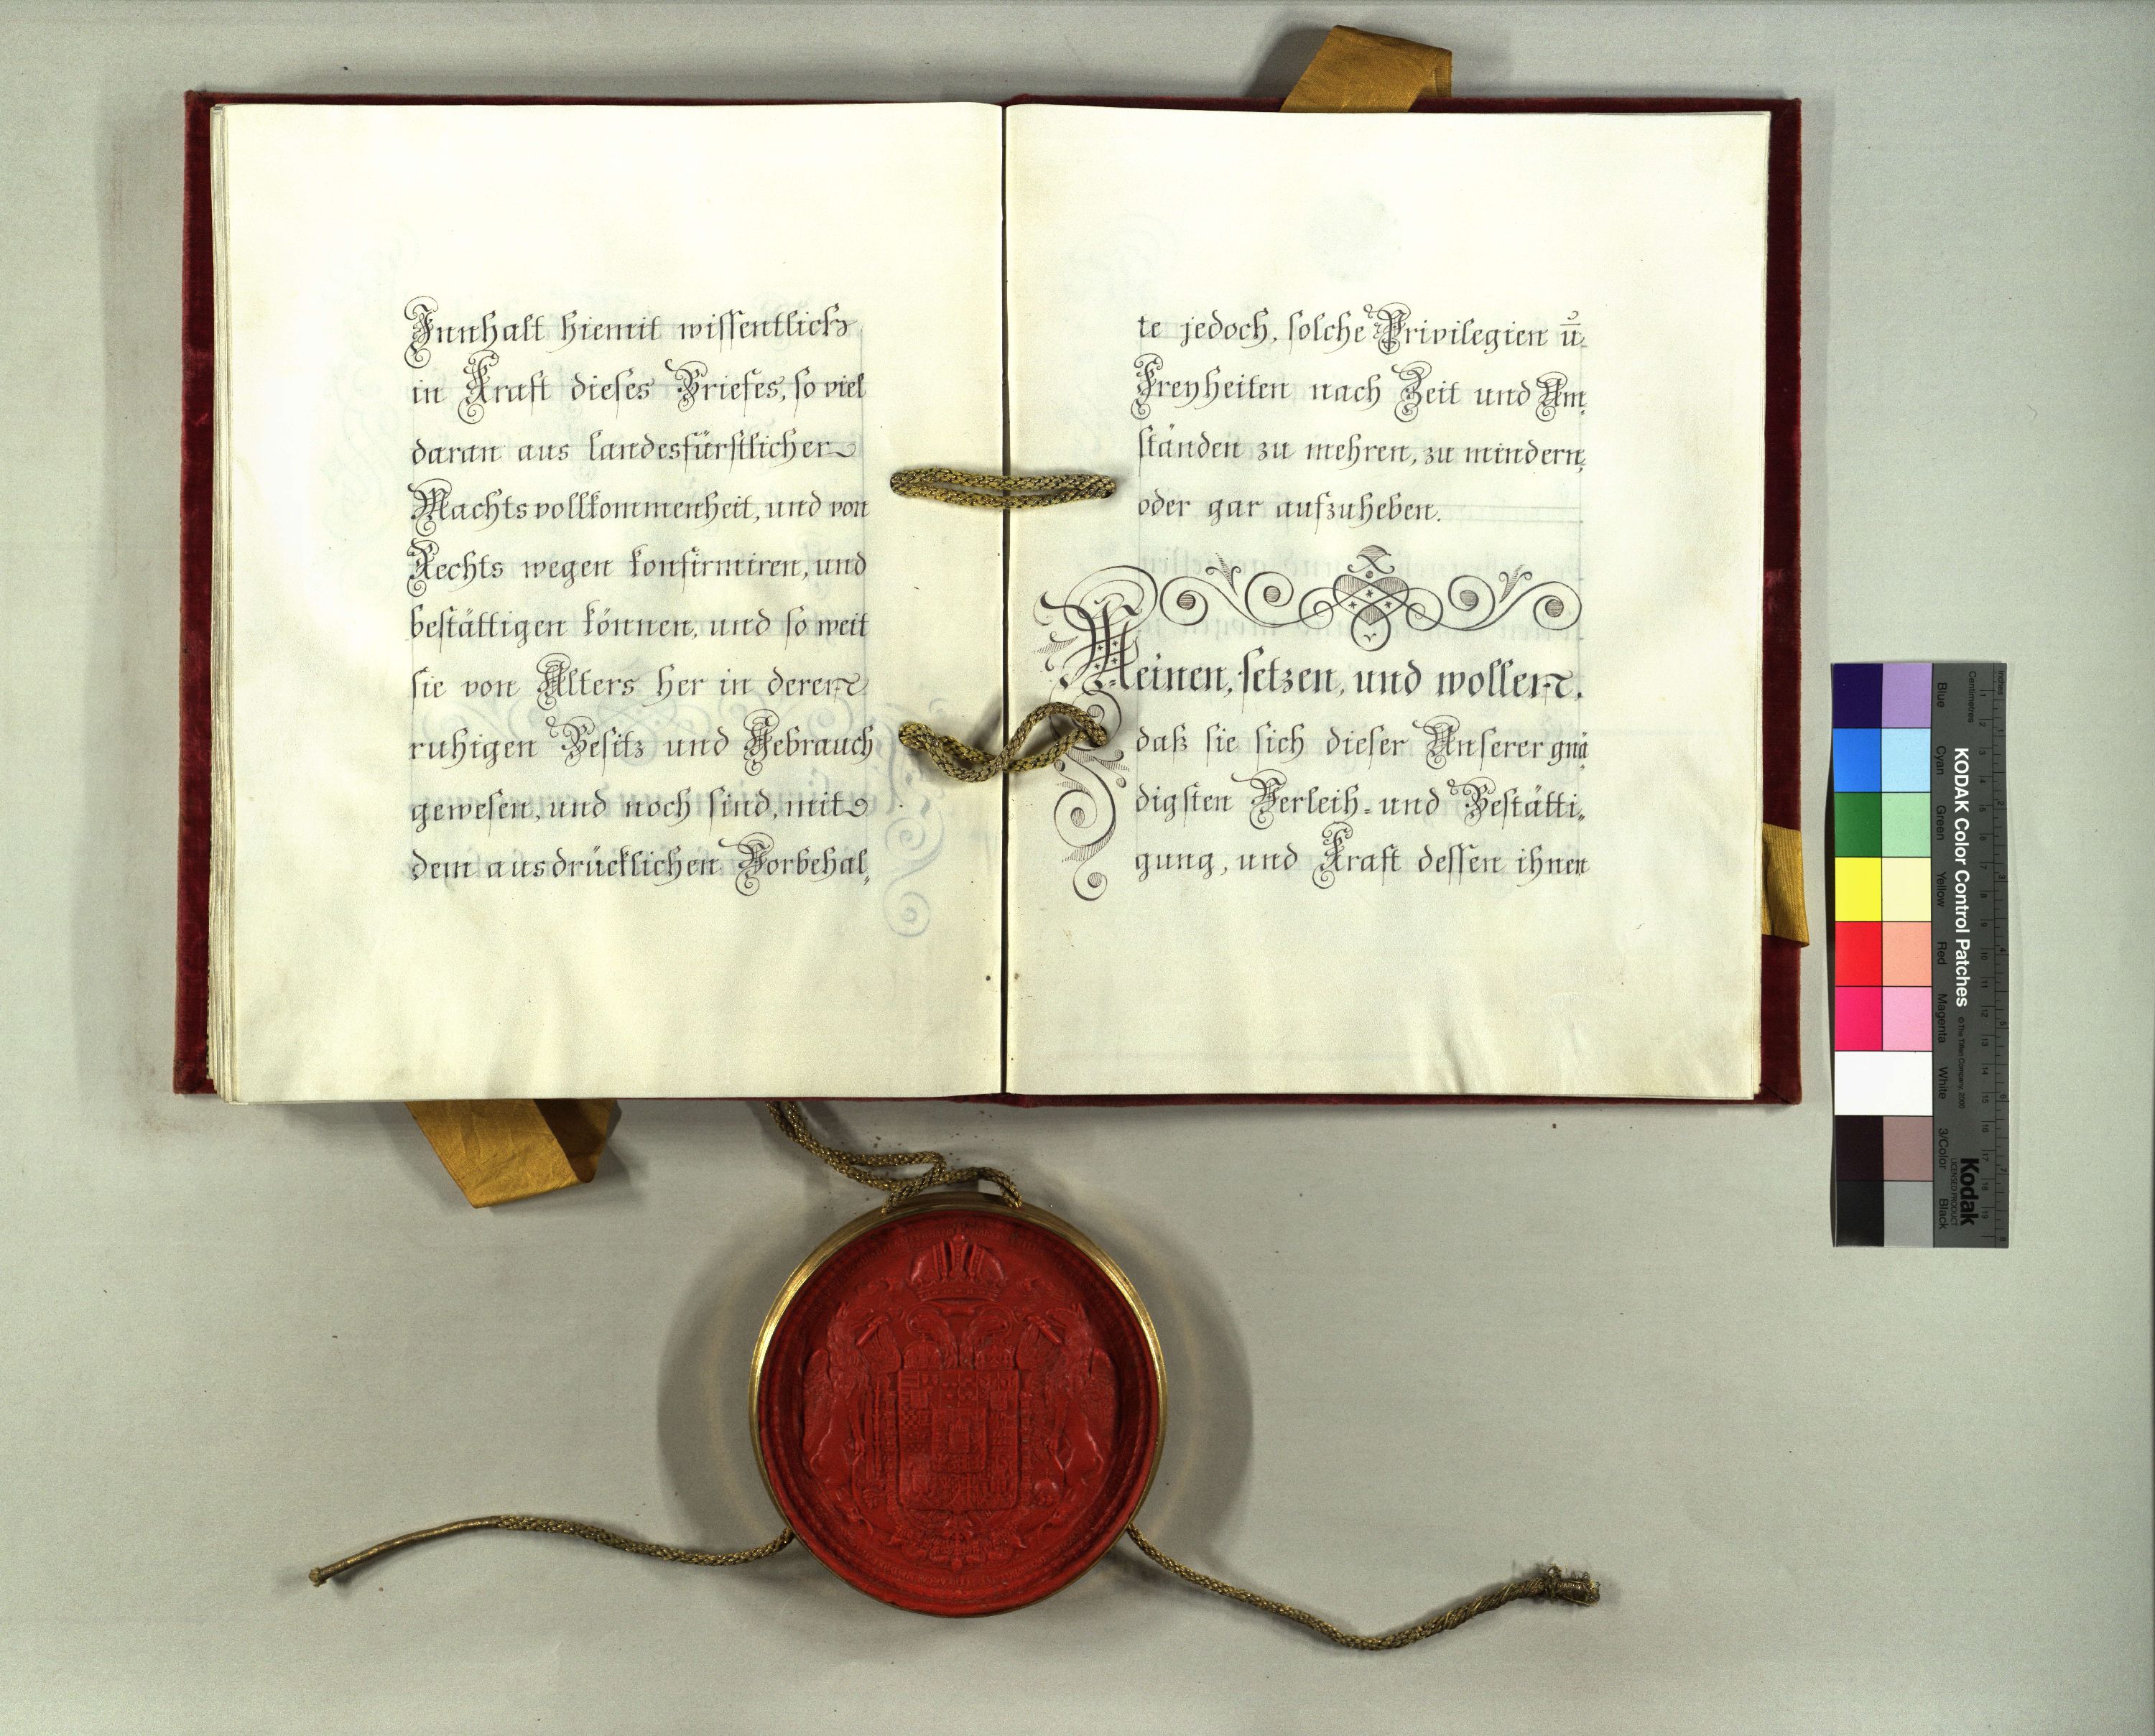 Innhalt hiemit wissentlich
in Kraft dieses Briefes, so viel
daran aus landesfürstlicher
Machtsvollkommenheit, und von
Rechts wegen konfirmiren, und
bestättigen können, und so weit
sie von Alters her in deren
ruhigen Besitz und Gebrauch
gewesen, und noch sind, mit
dem ausdrücklichen Vorbehal„
te jedoch, solche Privilegien ū.
Freyheiten nach Zeit und Um„
ständen zu mehren, zu mindern,
oder gar aufzuheben.
Meinen, setzen, und wollen,
daß sie sich dieser Unserer gnä„
digsten Verleih- und Bestätti„
gung, und Kraft dessen ihnen
KODAK Color Control Patches
© The Tiffen Company, 2000
Kodak
LICENSED PRODUCT
Inches
Centimetres
Blue
Cyan
Green
Yellow
Red
Magenta
White
3/Color
Black